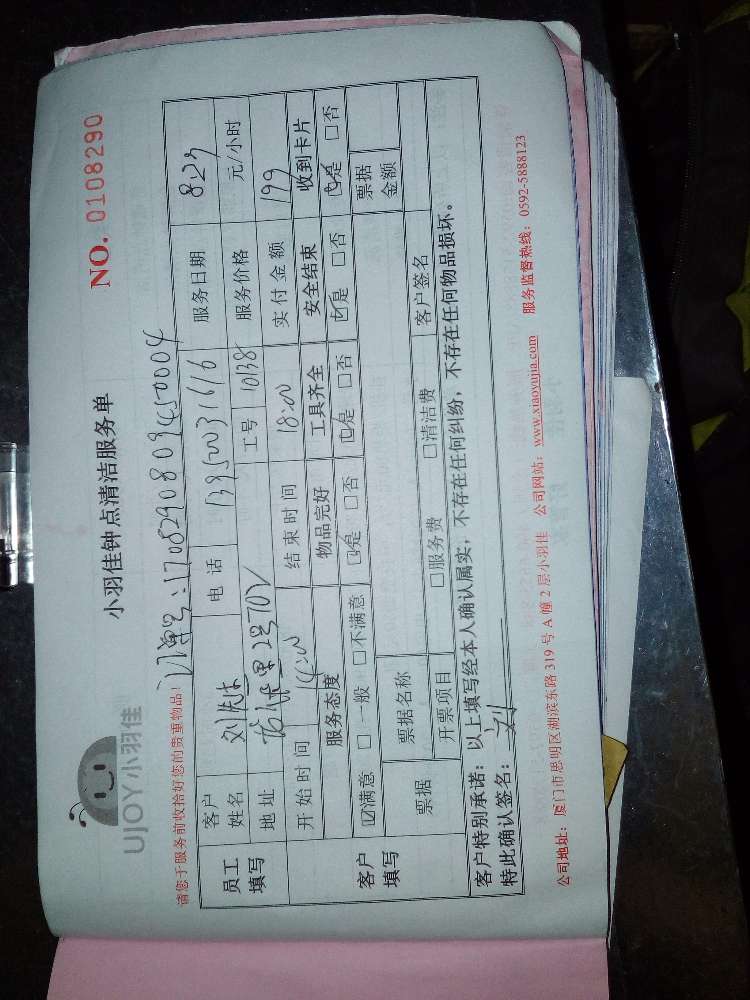 UJOY小羽佳
小羽佳钟点清洁服务单
NO. 0108290
请您于服务前收拾好您的贵重物品!
单号:1708290809450004
员工填写
客户姓名 刘先生 电话 13950031616 服务日期 8.29
地址 2号702 工号 10138 服务价格 元/小时
开始时间 14:00 结束时间 18:00 实付金额 199
客户填写
服务态度 物品完好 工具齐全 安全结束 收到卡片
☑满意 □一般 □不满意 ☑是 □否 ☑是 □否 ☑是 □否 ☑是 □否
票据 票据名称 票据金额
开票项目 □服务费 □清洁费 客户签名
客户特别承诺:以上填写经本人确认属实,不存在任何纠纷,不存在任何物品损坏。
特此确认签名:刘
公司地址:厦门市思明区湖滨东路 319 号 A 幢 2 层小羽佳 公司网站:www.xiaoyujia.com 服务监督热线:0592-5888123